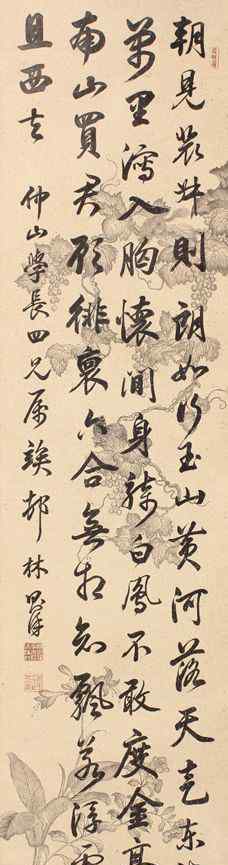 朝見裴叔則朗如行玉山黃河落天走東
萬里瀉入胸懷間身騎白鳳不敢度金高
南山買君顧徘徊六合無相知飄若浮雲
且西去
仲山學長四兄屬 鄣林